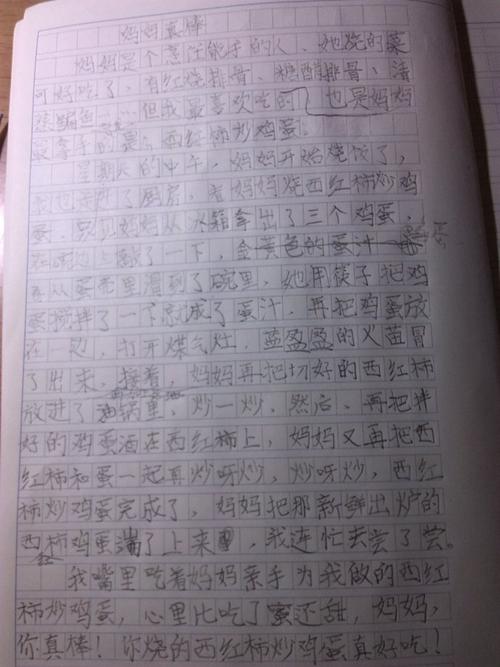 妈妈真棒
妈妈是个烹饪能手的人、她烧的菜
可好吃了,有红烧排骨、糖醋排骨、清
蒸鳊鱼……但我最喜欢吃的,也是妈妈
最拿手的是:西红柿炒鸡蛋。
星期天的中午,妈妈开始烧饭了,
我也走进了厨房,看妈妈烧西红柿炒鸡
蛋。只见妈妈从冰箱拿出了三个鸡蛋,
在碗边上敲了一下,金黄色的蛋汁
从蛋壳里滑到了碗里,她用筷子把鸡
蛋搅拌了一下就成了蛋汁,再把鸡蛋放
在 边,打开煤气灶,蓝盈盈的火苗冒
了出来,接着,妈妈再把切好的西红柿
放进了油锅里,炒一炒,然后、再把拌
好的鸡蛋洒在西红柿上,妈妈又再把西
红柿和蛋一起再炒呀炒,炒呀炒,西红
柿炒鸡蛋完成了,妈妈把那新鲜出炉的
西红柿鸡蛋端了上来,我连忙去尝了尝。
我嘴里吃着妈妈亲手为我做的西红
柿炒鸡蛋,心里比吃了蜜还甜,妈妈,
你真棒!你烧的西红柿炒鸡蛋真好吃!